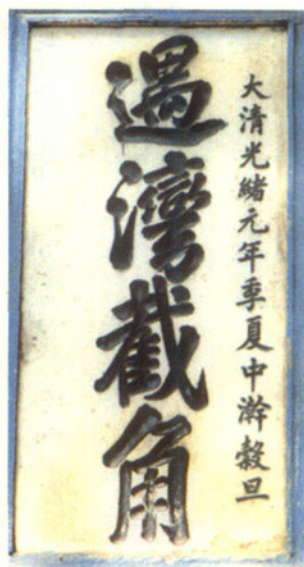 大清光緒元年季夏中澣穀旦
遇灣截角